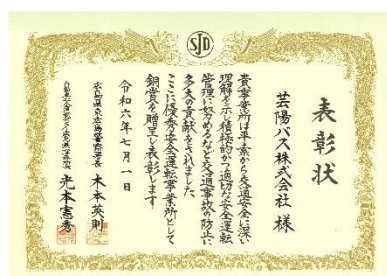 SJD
表彰状
芸陽バス株式会社 様
貴事業所は平素から交通安全に深い
理解を示し積極的かつ適切な安全運転
管理に努めるなど交通事故の防止に
多大の貢献をされました
ここに優秀安全運転事業所として
銅賞を贈呈し表彰します
令和六年七月一日
広島県東広島警察署長 木本英則
自動車安全運転センター広島県事務所長 光本憲秀